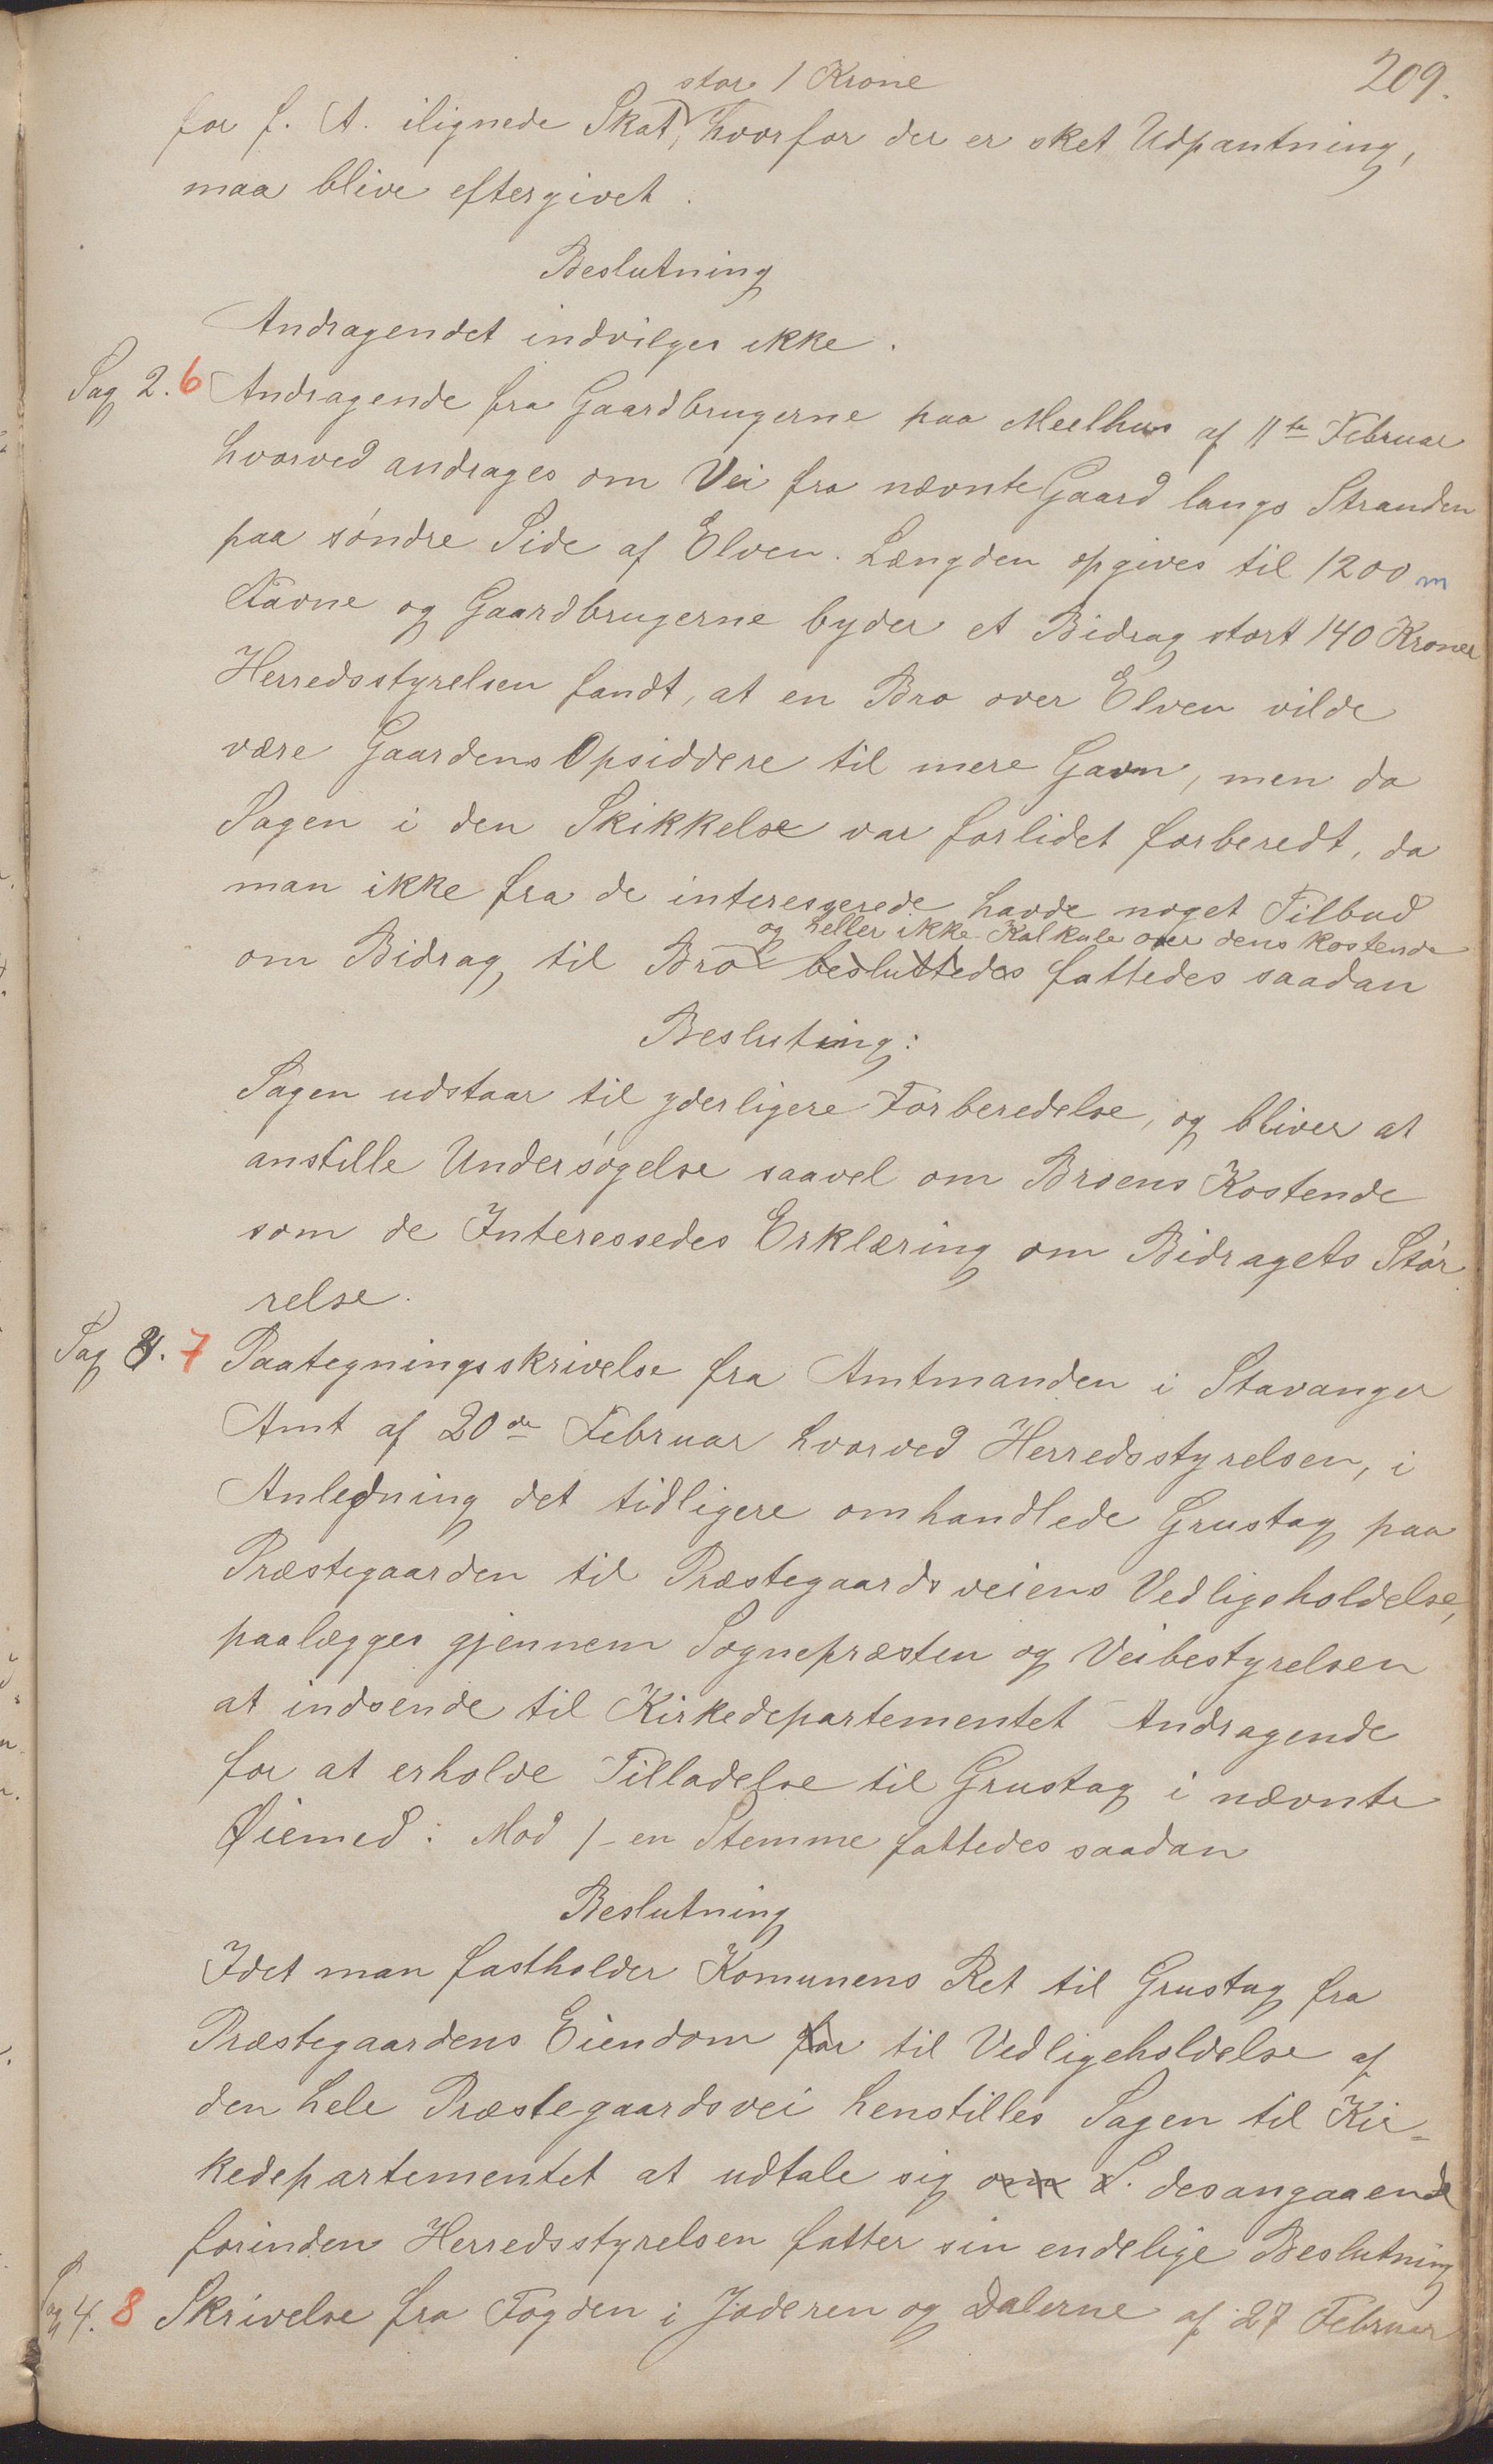 209.
stor 1 Krone
for f. A. ilignede Skat, hvorfor der er sket Udpantning,
maa blive eftergivet.
Beslutning
Andragendet indvilges ikke.
Sag 2. 6 Andragende fra Gaardbrugerne paa Meelhus af 11te Februar
hvorved andrages om Vei fra nævnte Gaard langs Stranden
paa søndre Side af Elven. Længden opgives til 1200 m
Favne og Gaardbrugerne byder et Bidrag stort 140 Kroner
Herredsstyrelsen fandt, at en Bro over Elven vilde
være Gaardens Opsiddere til mere Gavn, men da
Sagen i den Skikkelse var forlidet forberedt, da
man ikke fra de interesserede havde noget Tilbud
og heller ikke Kalkule over dens kostende
om Bidrag til Bro besluttedes fattedes saadan
Besluting:
Sagen udstaar til yderligere Forberedelse, og bliver at
anstille Undersøgelse saavel om Broens Kostende
som de Interessedes Erklæring om Bidragets Stør
relse.
Sag 3. 7 Paategningsskrivelse fra Amtmanden i Stavanger
Amt af 20de Februar hvorved Herredsstyrelsen, i
Anledning det tidligere omhandlede Grustag paa
Præstegaarden til Præstegaardsveiens Vedligeholdelse,
paalægges gjennem Sognepræsten og Veibestyrelsen
at indsende til Kirkedepartementet Andragende
for at erholde Tilladelse til Grustag i nævnte
Øiemed: Mod 1 - en Stemme fattedes saadan
Beslutning
Idet man fastholder Komunens Ret til Grustag fra
Præstegaardens Eiendom for til Vedligeholdelse af
den hele Præstegaardsvei henstilles Sagen til Kir=
kedepartementet at udtale sig om S. desangaaende
forinden Herredsstyrelsen fatter sin endelige Beslutning
Sag 4. 8 Skrivelse fra Fogden i Jæderen og Dalerne af 27 Februar